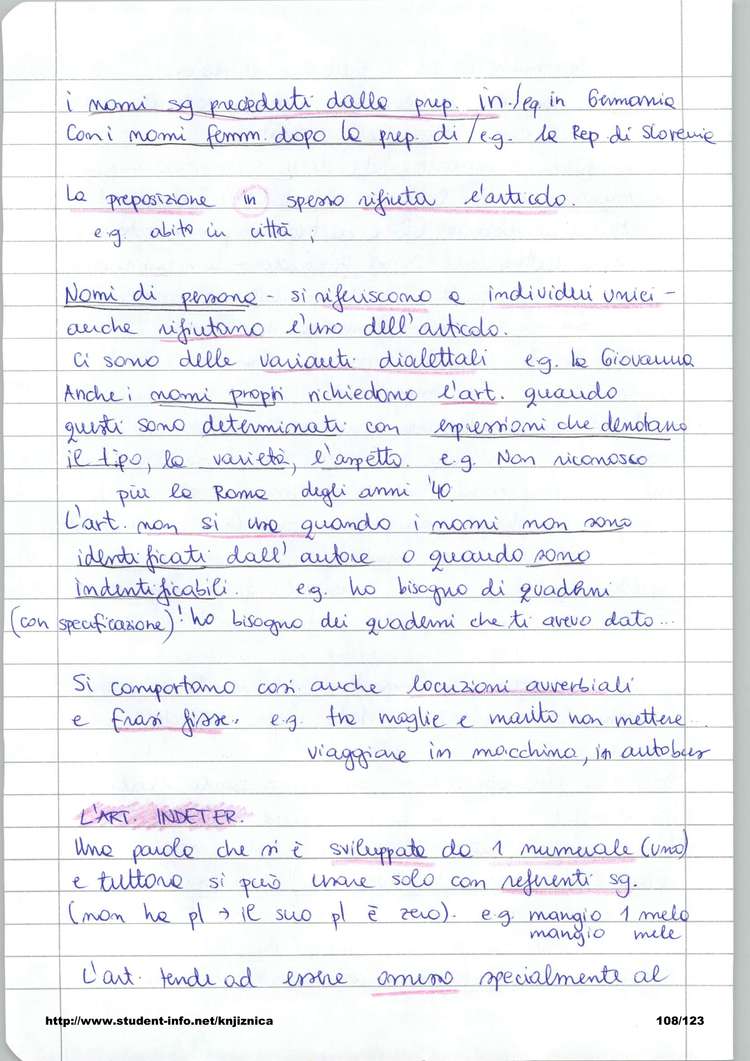 i nomi sg preceduti dalla prep. in./eg. in Germania
Con i nomi femm. dopo la prep. di /e.g. la Rep. di Slovenia
La preposizione in spesso rifiuta l'articolo.
e.g. abito in città ;
Nomi di persona - si riferiscono a individui unici -
anche rifiutano l'uso dell'articolo.
Ci sono delle varianti dialettali e.g. la Giovanna
Anche i nomi propri richiedono l'art. quando
questi sono determinati con espressioni che denotano
il tipo, la varietà, l'aspetto. e.g. Non riconosco
più la Roma degli anni '40.
L'art. non si usa quando i nomi non sono
identificati dall'autore o quando sono
indentificabili. e.g. ho bisogno di quaderni
(con specificazione)! ho bisogno dei quaderni che ti avevo dato...
Si comportano così anche locuzioni avverbiali
e frasi fisse. e.g. tra moglie e marito non mettere...
viaggiare in macchina, in autobus
L'ART. INDETER.
Una parola che si è sviluppata da 1 numerale (uno)
e tuttora si può usare solo con referenti sg.
(non ha pl → il suo pl è zero). e.g. mangio 1 mela
mangio mele
L'art. tende ad essere omesso specialmente al
http://www.student-info.net/knjiznica 108/123